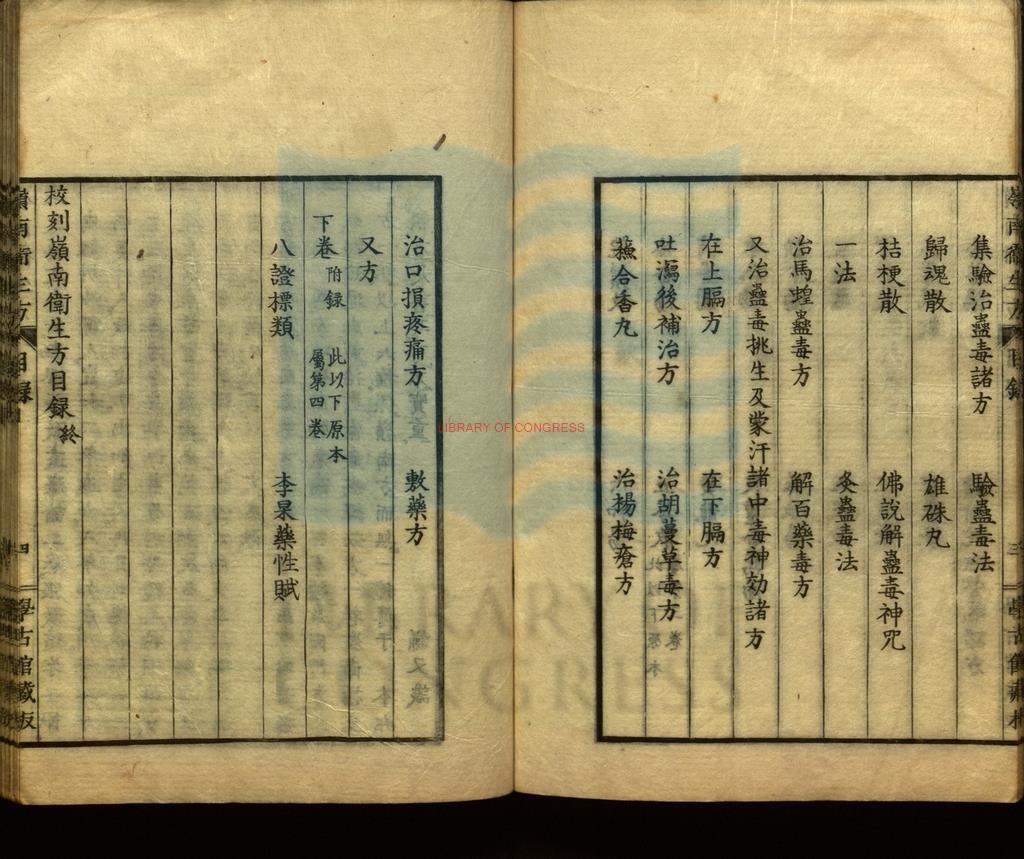 集驗治蠱毒諸方　驗蠱毒法
歸魂散　雄硃丸
桔梗散　佛說解蠱毒神咒
一法　灸蠱毒法
治馬蝗蠱毒方　解百藥毒方
又治蠱毒挑生及蒙汗諸中毒神効諸方
在上膈方　在下膈方
吐瀉後補治方　治胡蔓草毒方
蘓合香丸　治楊梅瘡方
治口損疼痛方　敷藥方
又方
下卷 附録 此以下原本屬第四卷
八證標類　李杲藥性賦
校刻嶺南衛生方目録 終
嶺南衛生方 目録 四 學古館藏板
LIBRARY OF CONGRESS